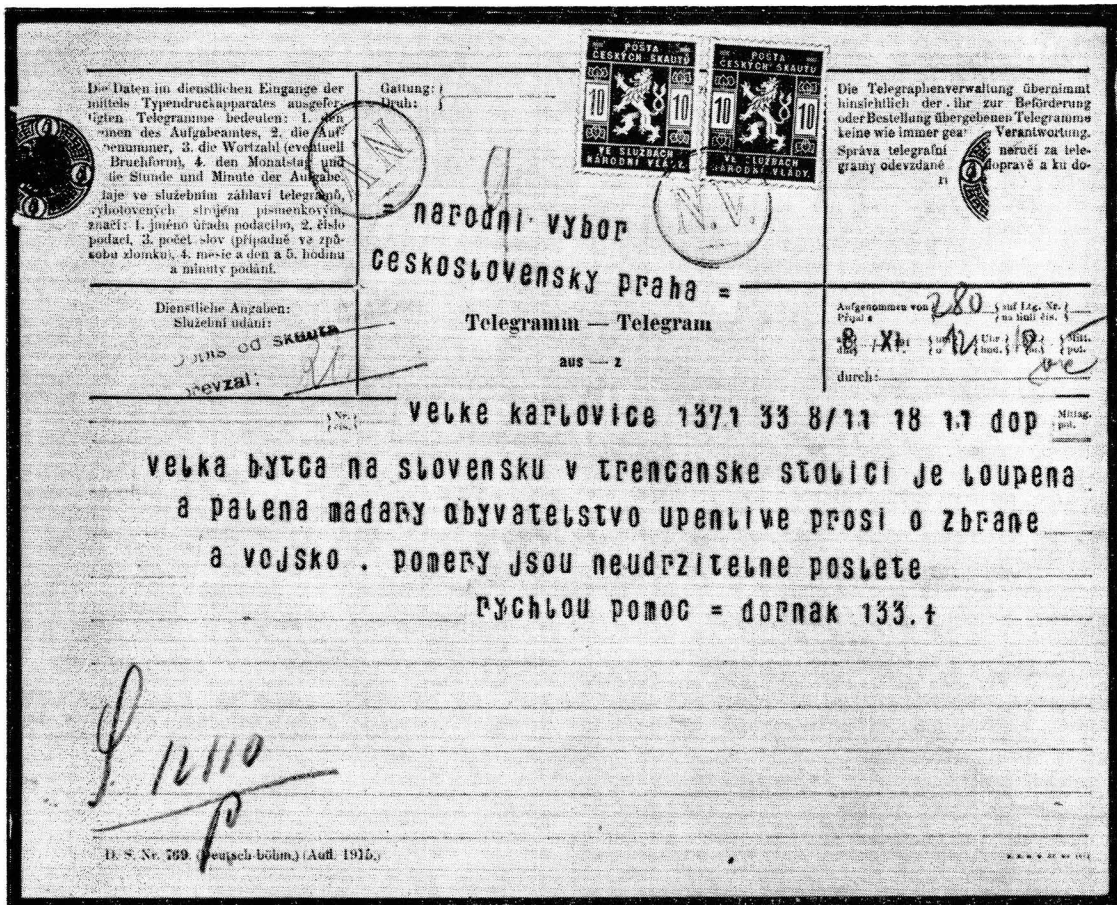 Die Daten im dienstlichen Eingange der
mittels Typendruckapparates ausgefer-
tigten Telegramme bedeuten: 1. den
Namen des Aufgabeamtes, 2. die Auf-
nummer, 3. die Wortzahl (eventuell
Bruchform), 4. den Monatstag und
die Stunde und Minute der Aufgabe.
Údaje ve služebním záhlaví telegramů,
vyhotovených strojem písmenkovým,
značí: 1. jméno úřadu podacího, 2. číslo
podací, 3. počet slov (případně ve způ-
sobu zlomku), 4. měsíc a den a 5. hodinu
a minuty podání.
Gattung:
Druh:
POŠTA
ČESKÝCH SKAUTŮ
10 10
VE SLUŽBÁCH
NÁRODNÍ VLÁDY.
POŠTA
ČESKÝCH SKAUTŮ
10 10
VE SLUŽBÁCH
NÁRODNÍ VLÁDY.
N.V.
Die Telegraphenverwaltung übernimmt
hinsichtlich der ihr zur Beförderung
oder Bestellung übergebenen Telegramme
keine wie immer gear Verantwortung.
Správa telegrafní neručí za tele-
gramy odevzdané dopravě a ku do-
= narodni vybor
ceskoslovensky praha =
Dienstliche Angaben:
Služební udání:
od skauta
převzal:
Telegramm — Telegram
aus — z
Aufgenommen von 280 auf Ltg. Nr.
Přijal z na lini čís.
8 XI. um 12 Uhr
o hod.
Mitt.
pol.
durch:
Nr.
velke karlovice 1371 33 8/11 18 11 dop Mittag.
pol.
velka bytca na slovensku v trencanske stolici je loupena
a palena madary obyvatelstvo upenlive prosi o zbrane
a vojsko . pomery jsou neudrzitelne poslete
rychlou pomoc = dornak 133.+
12110
D. S. Nr. 769. (Deutsch-böhm.) (Aufl. 1915.)